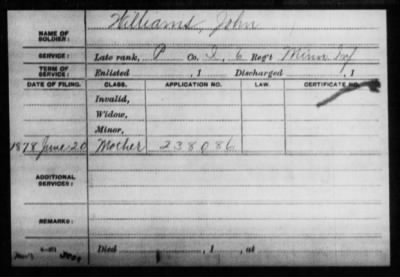 NAME OF SOLDIER: Williams, John
SERVICE: Late rank, P Co. I, 6 Reg't Minn Inf
TERM OF SERVICE: Enlisted , 1 Discharged , 1
DATE OF FILING. CLASS. APPLICATION NO. LAW. CERTIFICATE NO.
Invalid,
Widow,
Minor,
1878 June 20 Mother 238086
ADDITIONAL SERVICES:
REMARKS:
Died , 1 , at